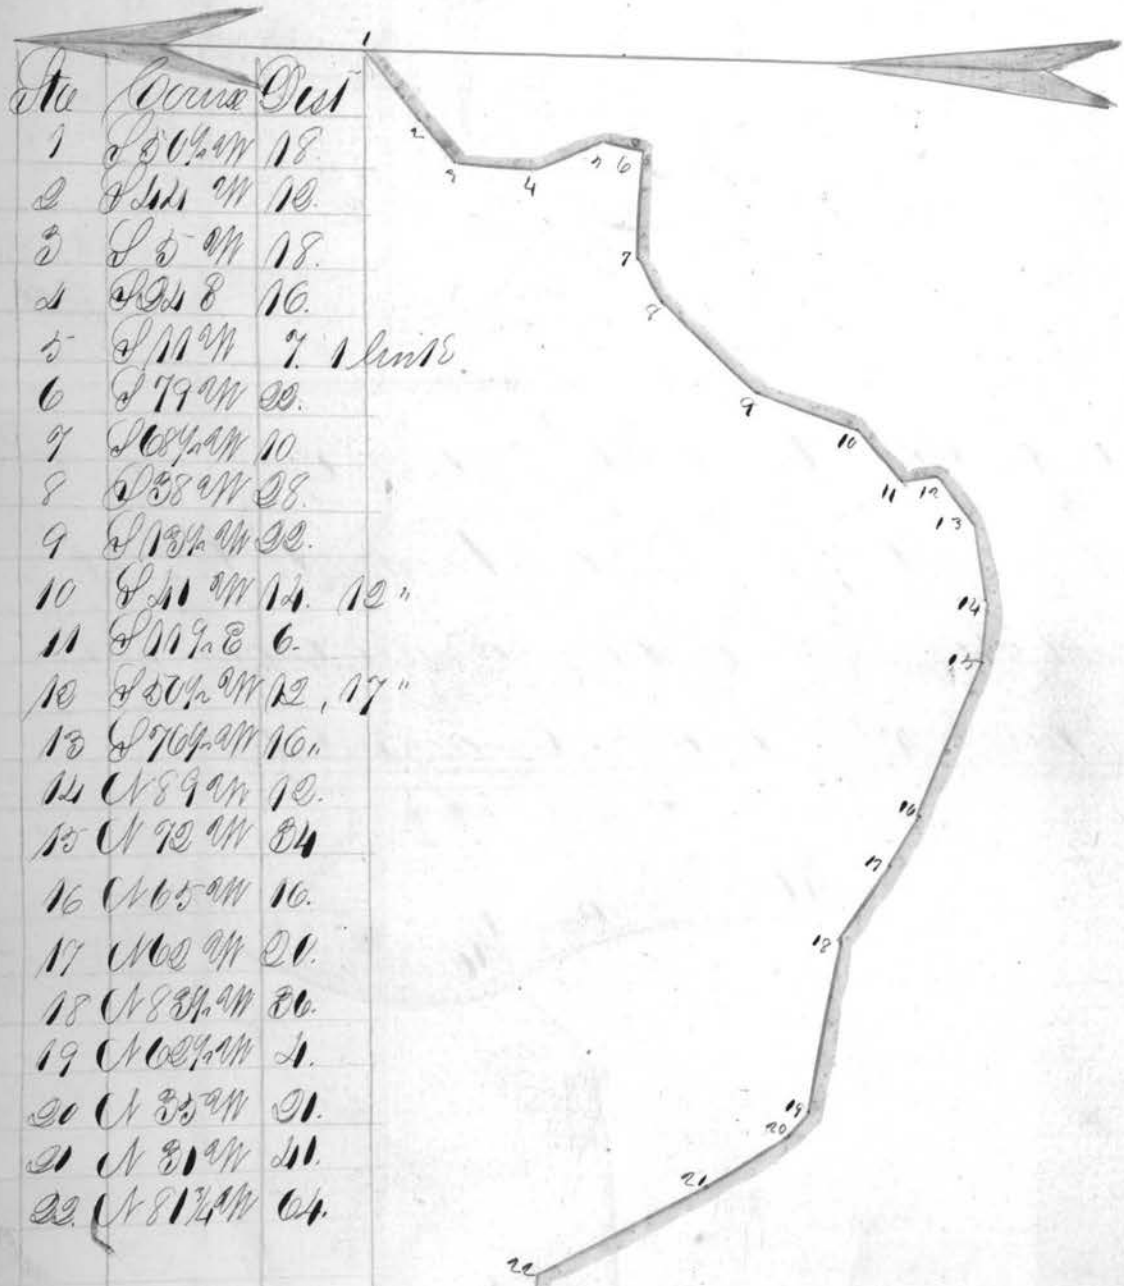 Sta Course Dist
1 S 50½ W 18.
2 S 44 W 12.
3 S 5 W 18.
4 S 24 E 16.
5 S 11 W 7. 1 link
6 S 79 W 22.
7 S 68½ W 10
8 S 38 W 28.
9 S 13½ W 22.
10 S 41 W 14. 12 "
11 S 11½ E 6.
12 S 50½ W 12, 17 "
13 S 76½ W 16.
14 N 89 W 12.
15 N 72 W 34
16 N 65 W 16.
17 N 62 W 20.
18 N 83½ W 36.
19 N 62½ W 4.
20 N 35 W 21.
21 N 31 W 41.
22. N 81¾ W 64.
1
2
3
4
5
6
7
8
9
10
11
12
13
14
15
16
17
18
19
20
21
22